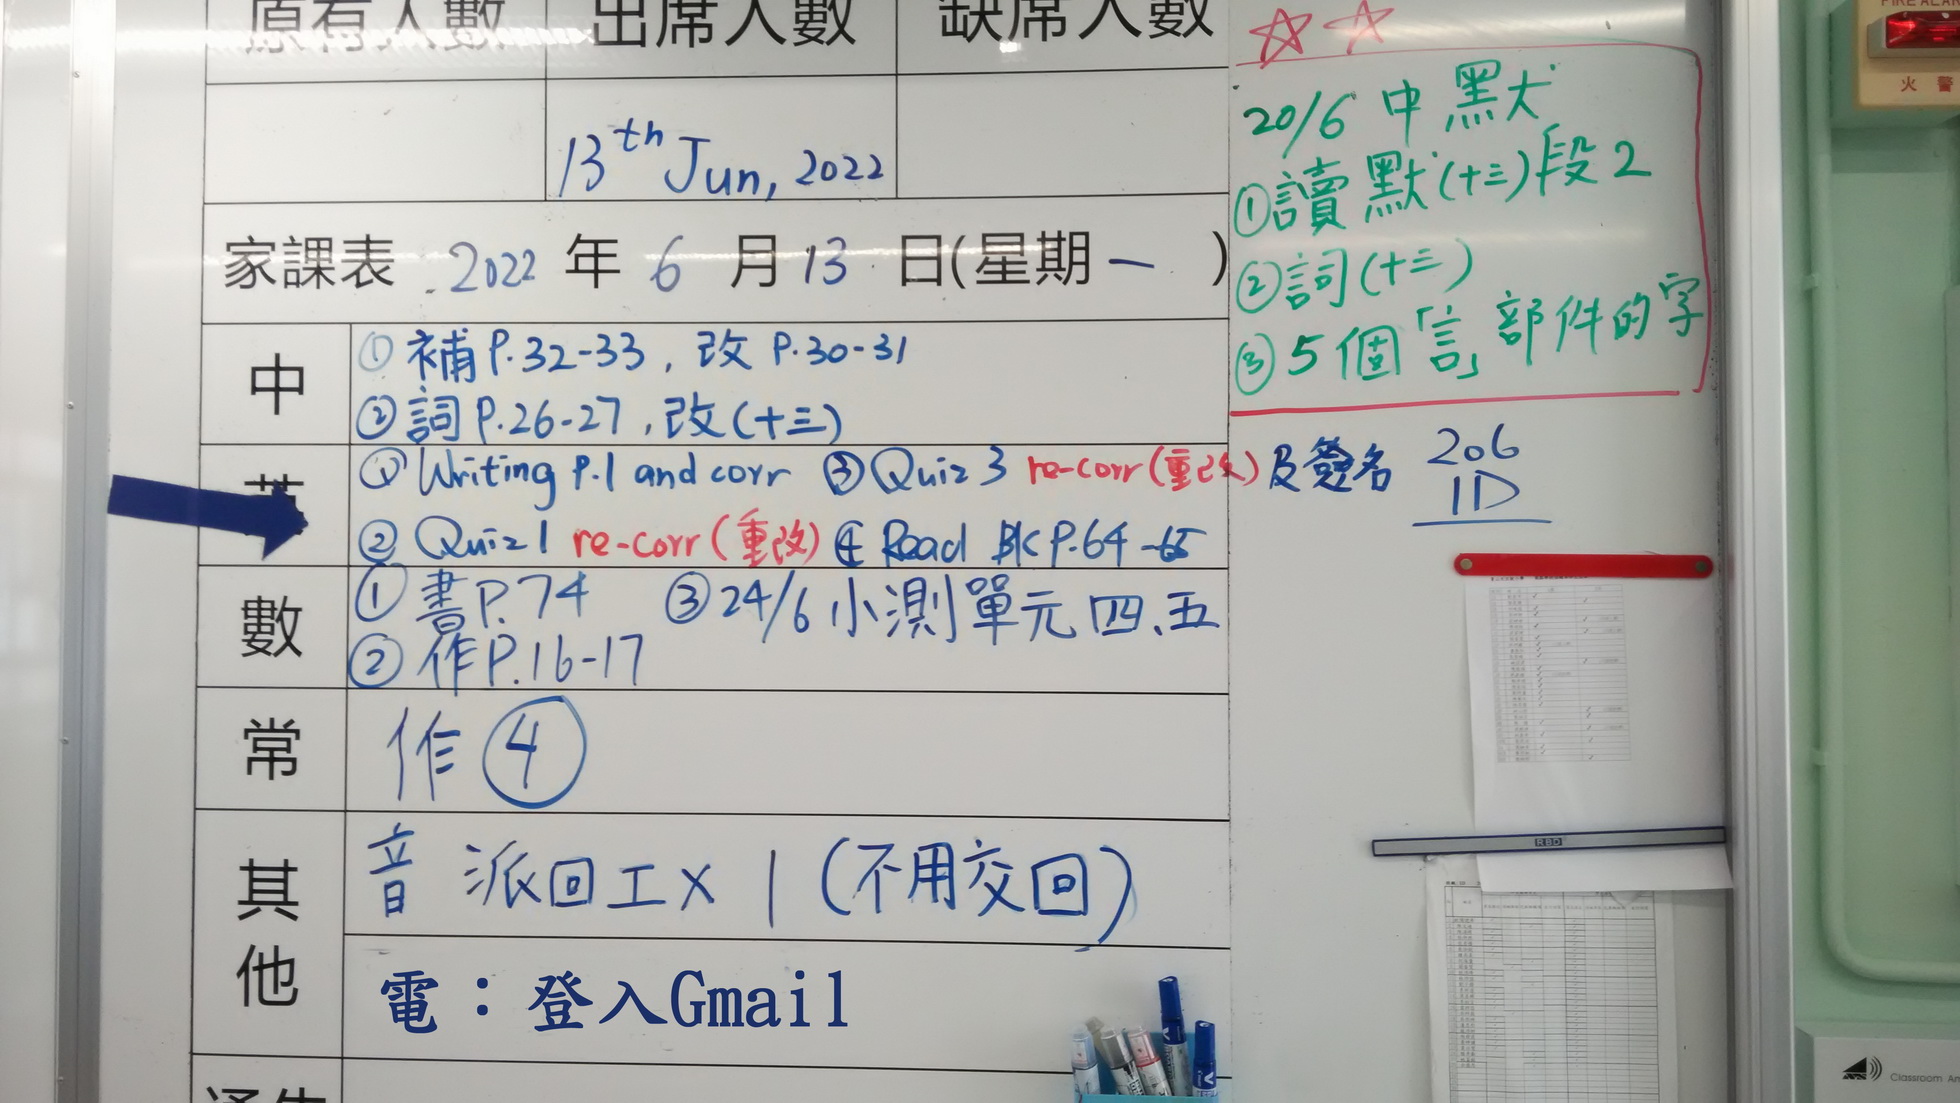 原有人數 出席人數 缺席人數
13th Jun, 2022
家課表 2022 年 6 月 13 日(星期一 )
中
① 補 P.32-33, 改 P.30-31
② 詞 P.26-27, 改(十三)
英
① Writing P.1 and corr ③ Quiz 3 re-corr (重改) 及簽名
② Quiz 1 re-corr (重改) ④ Read BK P.64-65
數
① 書P.74 ③ 24/6 小測單元四、五
② 作P.16-17
常
作④
其他
音 派回工X1 (不用交回)
電：登入Gmail
通告
20/6 中默
①讀默(十三)段2
②詞(十三)
③5個「言」部件的字
206
1D
RBD
FIRE ALARM
火警
Classroom